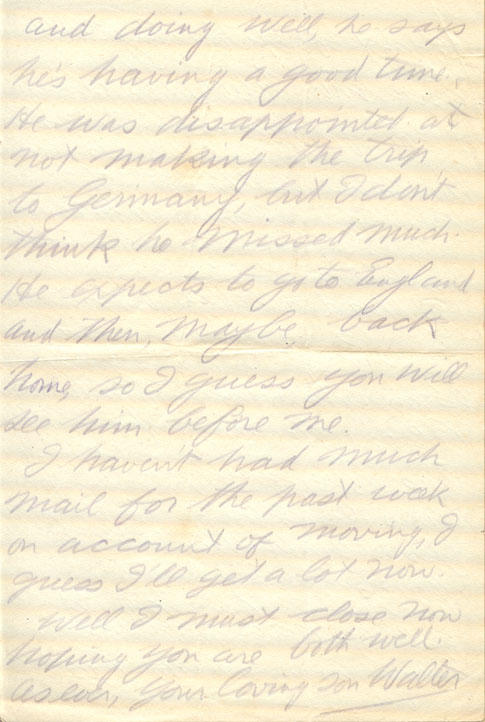 and doing well, he says
he's having a good time.
He was disappointed at
not making the trip
to Germany, but I don't
think he missed much.
He expects to go to England
and then, maybe, back
home, so I guess you will
see him before me.
I haven't had much
mail for the past week
on account of moving, I
guess I'll get a lot now.
Well I must close now
hoping you are both well.
As ever, your loving son Walter